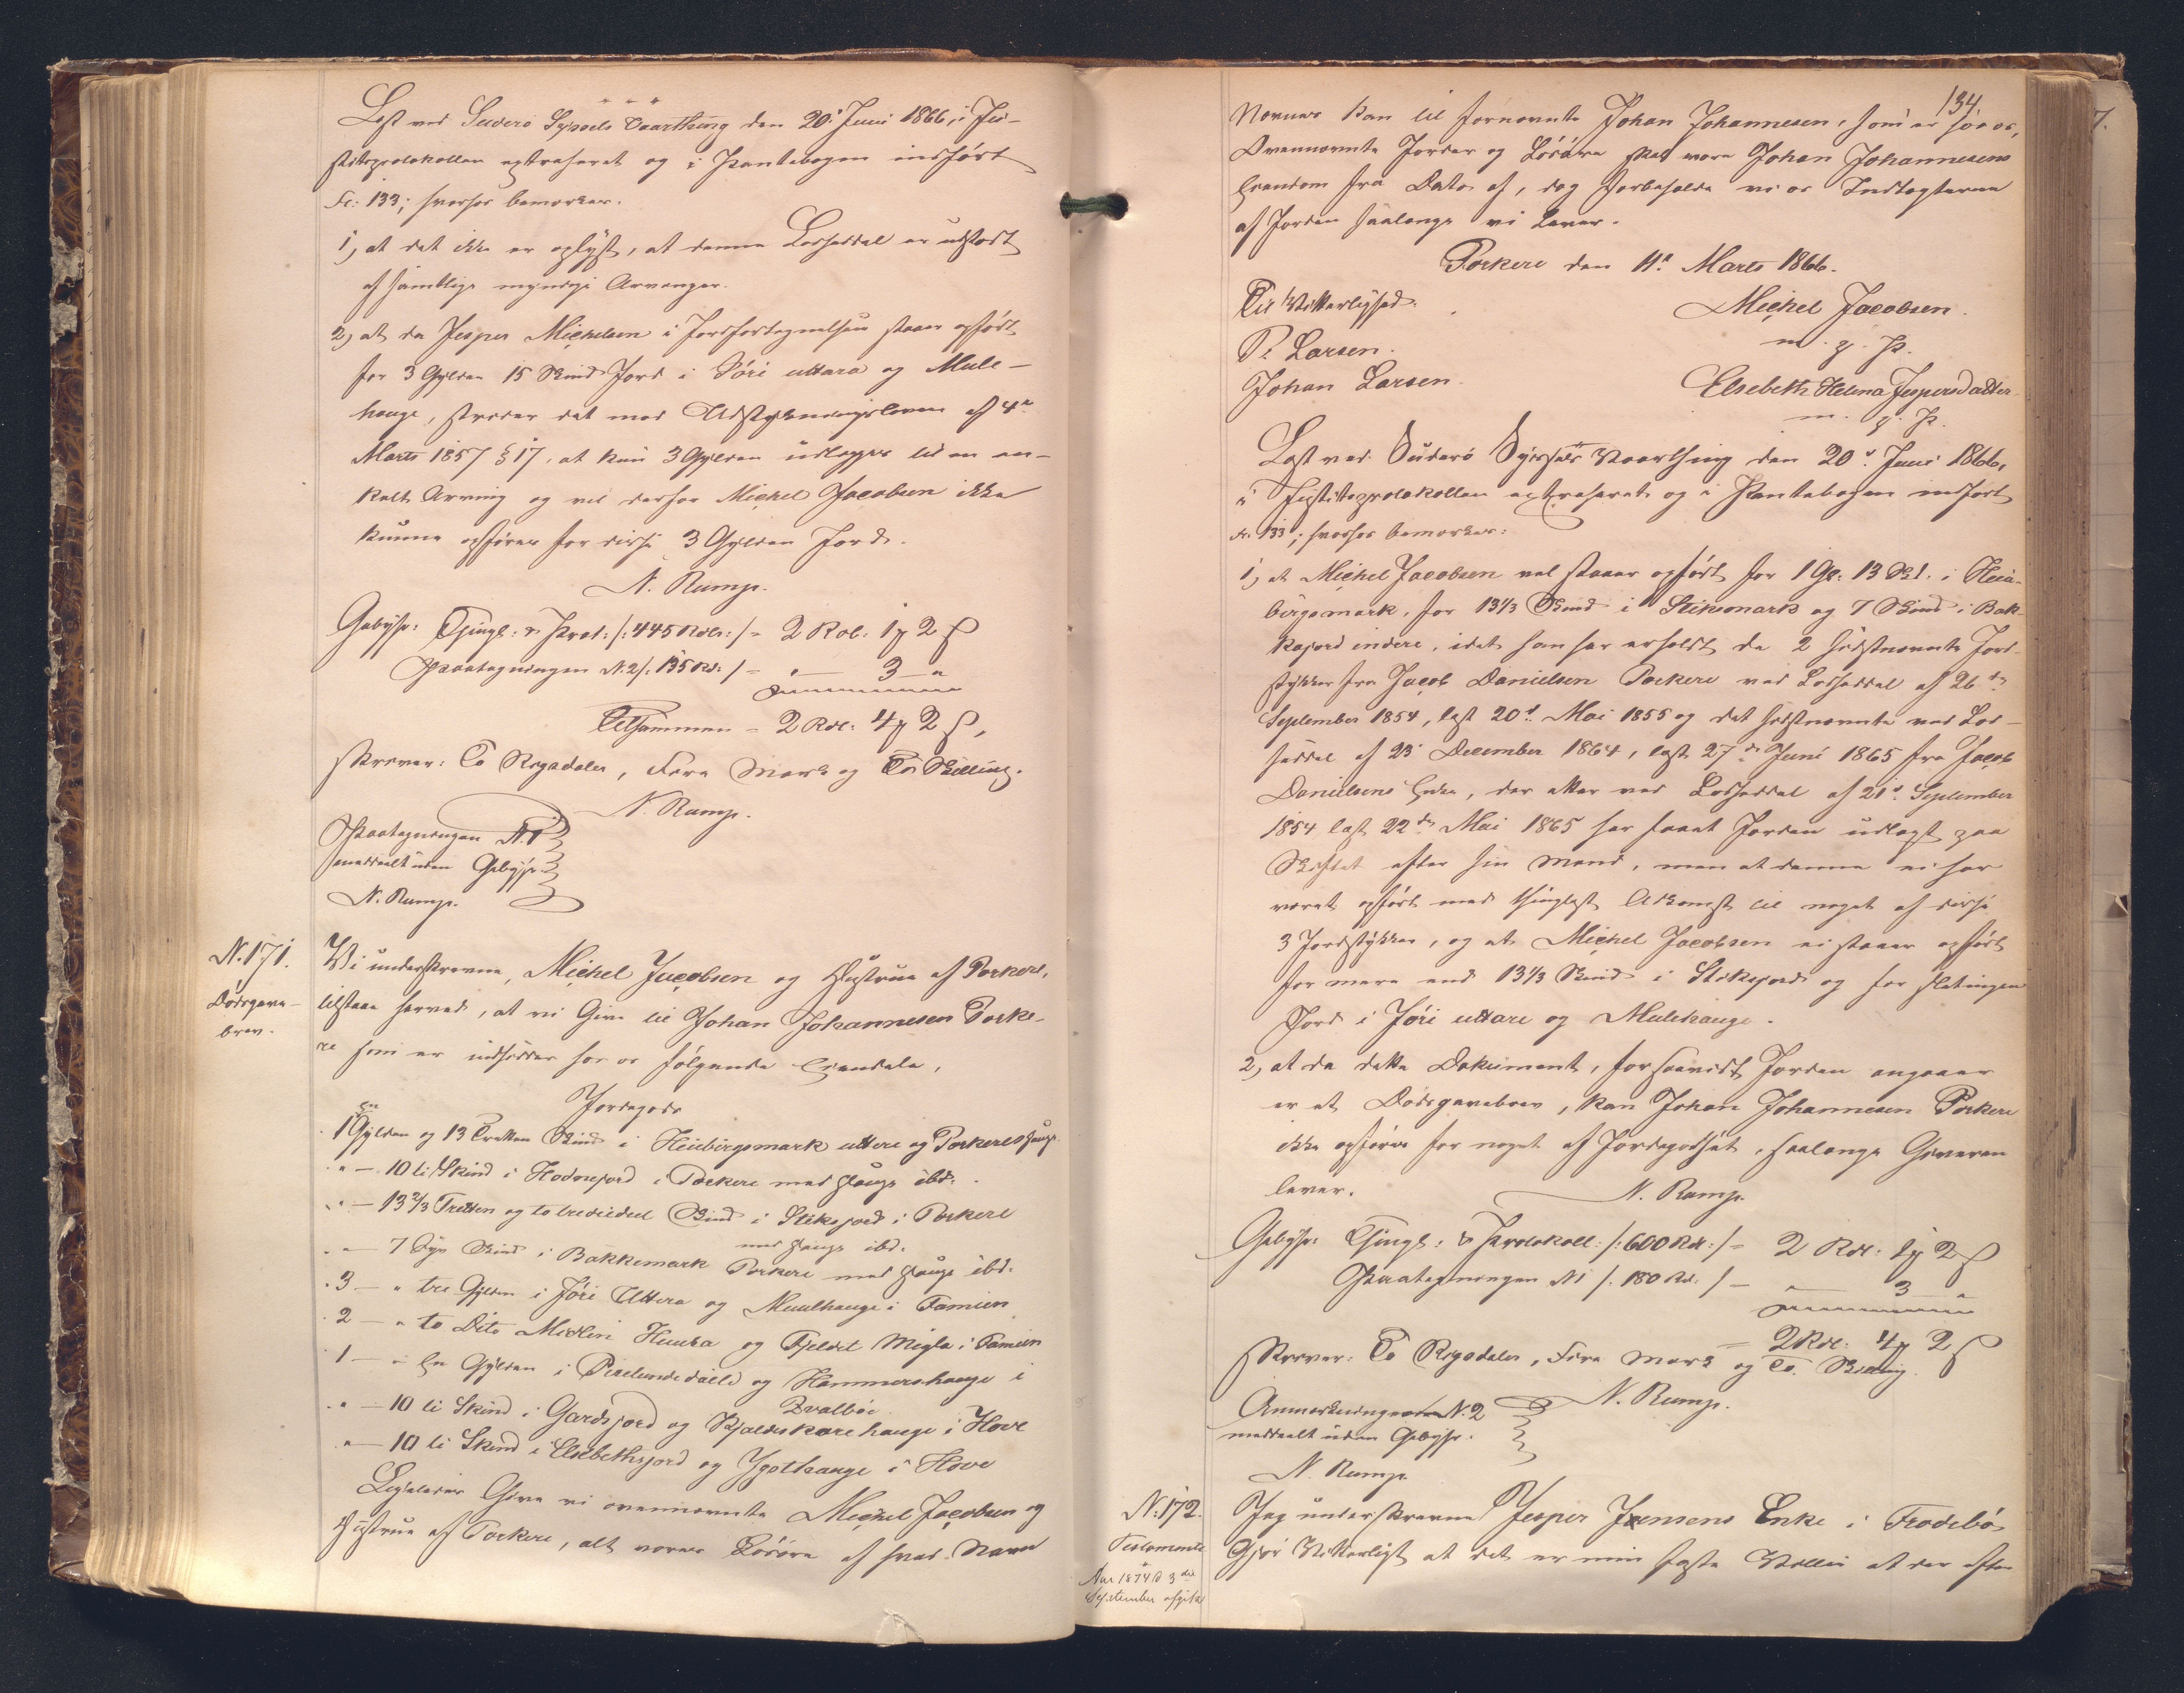 Læst ved Suderø Syssels Vaarthing den 20' Juni 1866, i Ju-
stitsprotokollen extraheret og i Pantebogen indført
Fc: 133; hvorhos bemærkes.
1, at det ikke er oplyst, at denne Losseddel er udstedt
af samtlige myndige Arvinger.
2, at da Jesper Michelsen i Jordfortegnelsen staaer opført
for 3 Gylden 15 Skind Jord i Föri uttara og Mule-
hauge, strider det mod Udstykningsloven af 4de
Marts 1857 § 17, at kun 3 Gylden udlægges til en en-
kelt Arving og vil derfor Michel Jacobsen ikke
kunne opføres for disse 3 Gylden Jord.
N. Rump.
Gebyhr: Thingl: & Prot: /: 445 Rdlr: / = 2 Rdl: 1 ɱ 2 ß
Paategningen N. 2 /: 135 Rd: / - " — 3 — "
Tilsammen = 2 Rdl: 4 ɱ 2 ß,
skriver: To Rigsdaler, Fire Mark og To Skilling.
N. Rump.
Paategningen N. 1
meddeelt uden Gebyhr.
N. Rump.
N. 171.
Dødsgave-
brev.
Vi underskrevne, Michel Jacobsen og Hustrue af Porkere,
tilstaae herved, at vi Give til Johan Johannesen Porke-
re som er indsidder hos os følgende Eiendele,
Jordegods
1 en Gylden og 13 Tretten Skind i Heiebirgsmark uttere og Porkereshauge
" — 10 ti Skind i Hodnejord i Porkere med Hauge ibd:
" — 13 2/3 Tretten og to trediedeel Skind i Stiksjord i Porkere
med Hauge ibd.
" — 7 Syv Skind i Bakkemark Porkere med Hauge ibd.
3 — " tre Gylden i Föri Uttera og Muulhauge i Famien
2 — " to Dito Midlin Huusa og Fjeldet Migla i Famien
1 — " En Gylden i Pirelundedaile og Hammershauge i
Qvalböe
" — 10 ti Skind i Gardsjord og Kjaldskorehauge i Hove
" — 10 ti Skind i Elsebethsjord og Ygothauge i Hove
Ligeledes Give vi ovennævnte Michel Jacobsen og
Hustrue af Porkere, alt vores Lösöre af hvad Navn
134.
Nævnes kan til fornævnte Johan Johannesen, som er hos os,
Ovennævnte Jorder og Lösöre skal være Johan Johannesens
Eiendom fra Dato af, dog forbeholde vi os Indtægterne
af Jorden saalænge vi Lever.
Porkere den 11te Marts 1866.
Til Vitterlighed:
P. Larsen.
Johan Larsen.
Michel Jacobsen.
m. p. P.
Elsebeth Helena Jespersdatter.
m. p. P.
Læst ved Suderø Syssels Vaarthing den 20de Juni 1866,
i Justitsprotokollen extraheret og i Pantebogen indført
Fc. 133; hvorhos bemærkes:
1, at Michel Jacobsen vel staaer opført for 1 Gl: 13 Sk. i Heie-
birgsmark, for 13 1/3 Skind i Stiksmark og 7 Skind i Bak-
kajord indere, idet han har erholdt de 2 sidstnævnte Jord-
stykker fra Jacob Danielsen Porkere ved Losseddel af 26de
September 1854, læst 20de Mai 1855 og det sidstnævnte ved Los-
seddel af 23' December 1864, læst 27de Juni 1865 fra Jacob
Danielsens Enke, der atter ved Losseddel af 21de September
1854 læst 22de Mai 1865 har faaet Jorden udlagt paa
Skiftet efter sin Mand, men at denne ei har
været opført med thinglæst Adkomst til noget af disse
3 Jordstykker, og at Michel Jacobsen ei staaer opført
for mere end 13 1/3 Skind i Stiksjord og for slet ingen
Jord i Föri uttare og Mulehauge.
2, at da dette Dokument, forsaavidt Jorden angaaer
er et Dødsgavebrev, kan Johan Johannesen Porkere
ikke opføres for noget af Jordegodset, saalænge Giveren
lever.
N. Rump.
Gebyhr: Thingl: & Protokoll: /: 600 Rd: / = 2 Rdl: 1 ɱ 2 ß
Paategningen N 1 /: 180 Rd. / - " 3 "
= 2 Rdl: 4 ɱ 2 ß
skriver: To Rigsdaler, Fire Mark og To Skilling.
N. Rump.
Anmærkningen N. 2
meddeelt uden Gebyhr.
N. Rump.
N: 172.
Testamente
Aar 1874 d 3die
September afgik
Jeg underskrevne Jesper Jensens Enke i Frodebö
Gjör Vitterligt at det er min sidste Villie at der efter